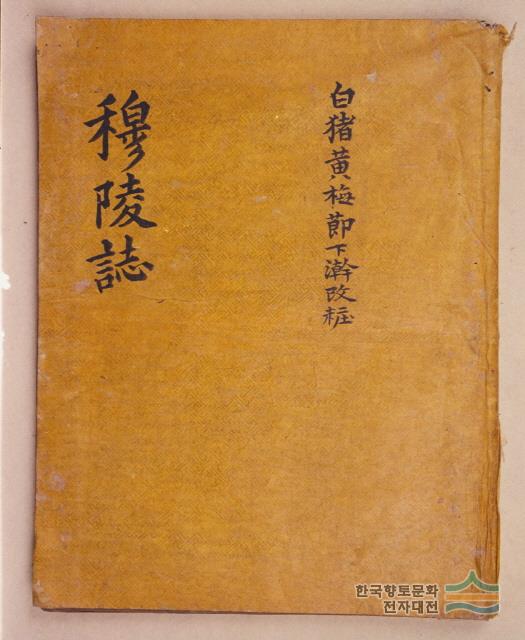 白猪黄梅節下澣改粧
穆陵誌
한국향토문화
전자대전